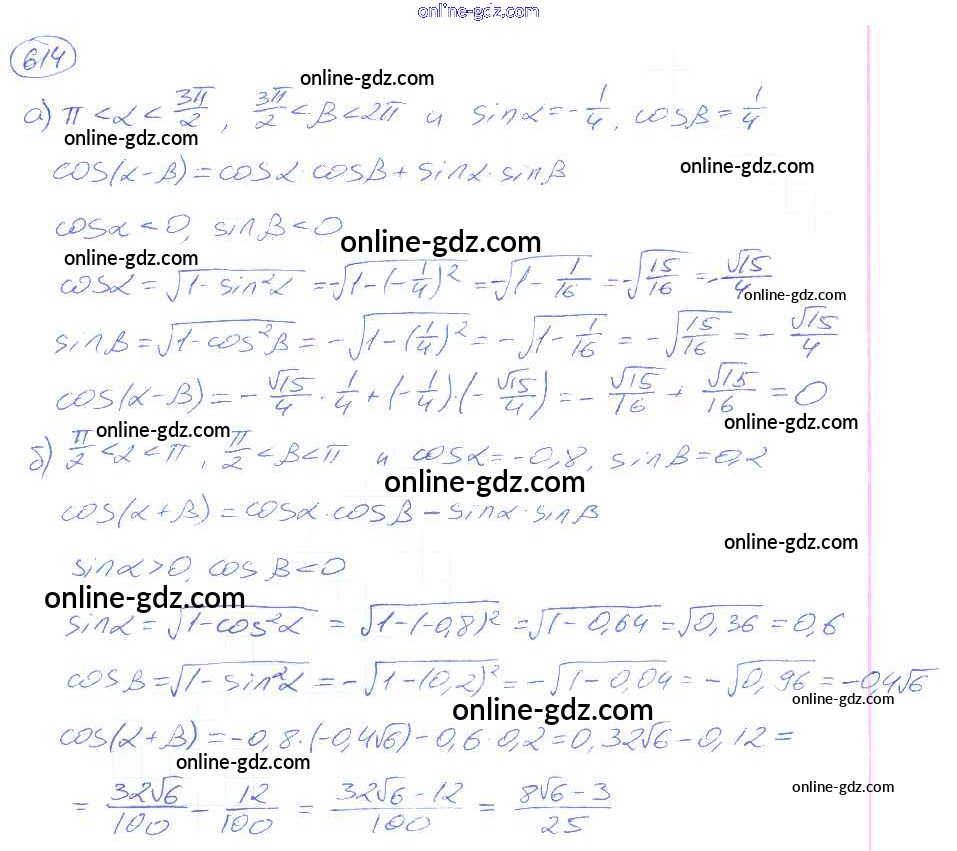 online-gdz.com
614
online-gdz.com
а) π < α < 3π/2, 3π/2 < β < 2π и sinα = -1/4, cosβ = 1/4
online-gdz.com
cos(α-β) = cosα · cosβ + sinα · sinβ
online-gdz.com
cosα < 0, sinβ < 0
online-gdz.com
online-gdz.com
cosα = √(1-sin²α) = -√(1-(-1/4)²) = -√(1-1/16) = -√(15/16) = -√15/4
online-gdz.com
sinβ = √(1-cos²β) = -√(1-(1/4)²) = -√(1-1/16) = -√(15/16) = -√15/4
cos(α-β) = -√15/4 · 1/4 + (-1/4) · (-√15/4) = -√15/16 + √15/16 = 0
online-gdz.com
online-gdz.com
б) π/2 < α < π, π/2 < β < π и cosα = -0,8, sinβ = 0,2
online-gdz.com
cos(α+β) = cosα · cosβ - sinα · sinβ
online-gdz.com
sinα > 0, cosβ < 0
online-gdz.com
sinα = √(1-cos²α) = √(1-(-0,8)²) = √(1-0,64) = √0,36 = 0,6
cosβ = √(1-sin²α) = -√(1-(0,2)²) = -√(1-0,04) = -√0,96 = -0,4√6
online-gdz.com
online-gdz.com
cos(α+β) = -0,8 · (-0,4√6) - 0,6 · 0,2 = 0,32√6 - 0,12 =
online-gdz.com
online-gdz.com
= 32√6/100 - 12/100 = (32√6 - 12)/100 = (8√6 - 3)/25